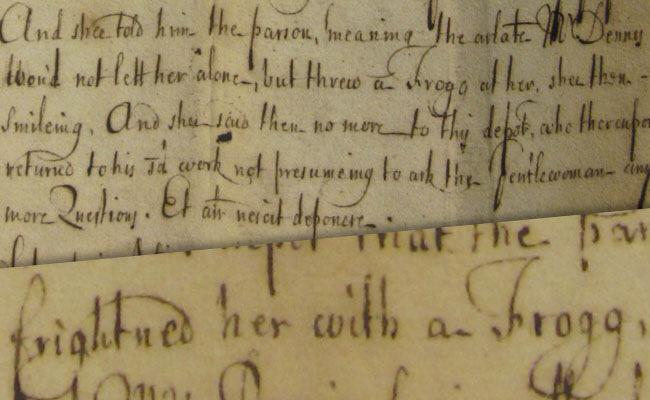 And shee told him the parson, meaning the arlate Mr Denny
wou'd not lett her alone, but threw a Frogg at her, shee then
smileing. And shee said then no more to this dept, who thereupon
returned to his sd work not presumeing to ask the Gentlewoman any
more Questions. Et alr nescit deponere
that the par
frightned her with a Frogg,